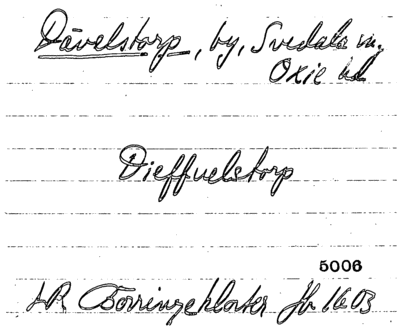 Dävelstorp, by, Svedala sn,
Oxie hd
Dieffuelstorp
5006
LR Borringekloster Jb 1603